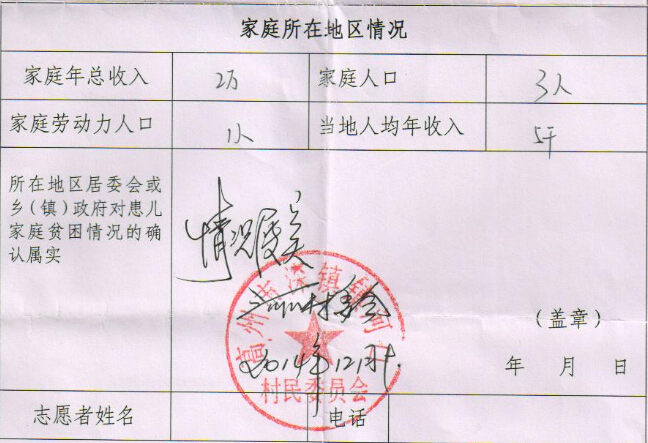 家庭所在地区情况
家庭年总收入 2万 家庭人口 3人
家庭劳动力人口 1人 当地人均年收入 5千
所在地区居委会或
乡(镇)政府对患儿
家庭贫困情况的确
认属实
情况属实
村委会
2014年12月
村民委员会
(盖章)
年 月 日
志愿者姓名 电话